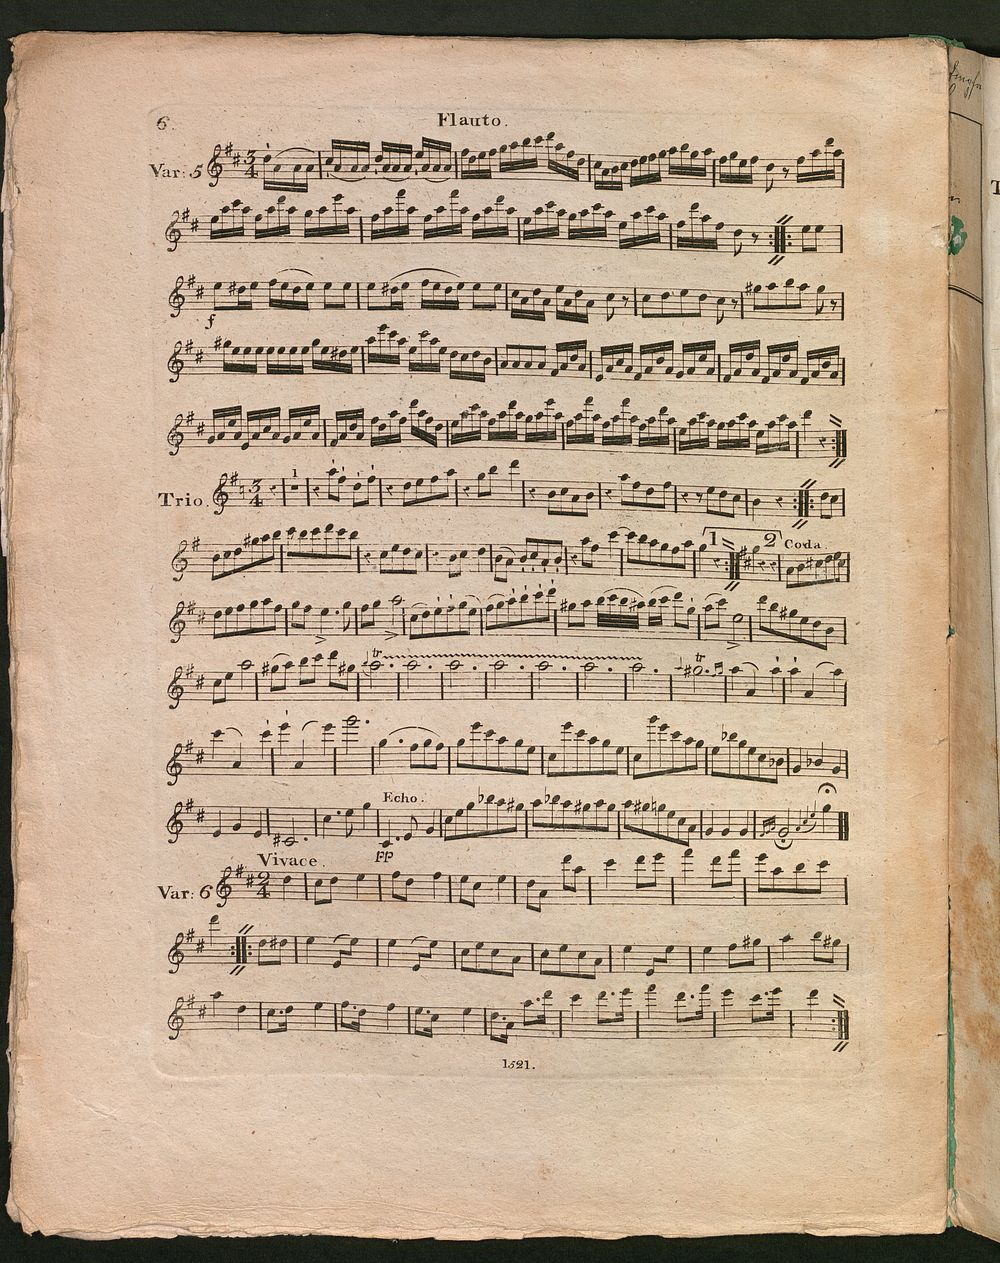 6. Flauto.
Var: 5
f
Trio. 1
1 2 Coda.
tr tr
Echo.
pp
Vivace.
Var: 6
1521.